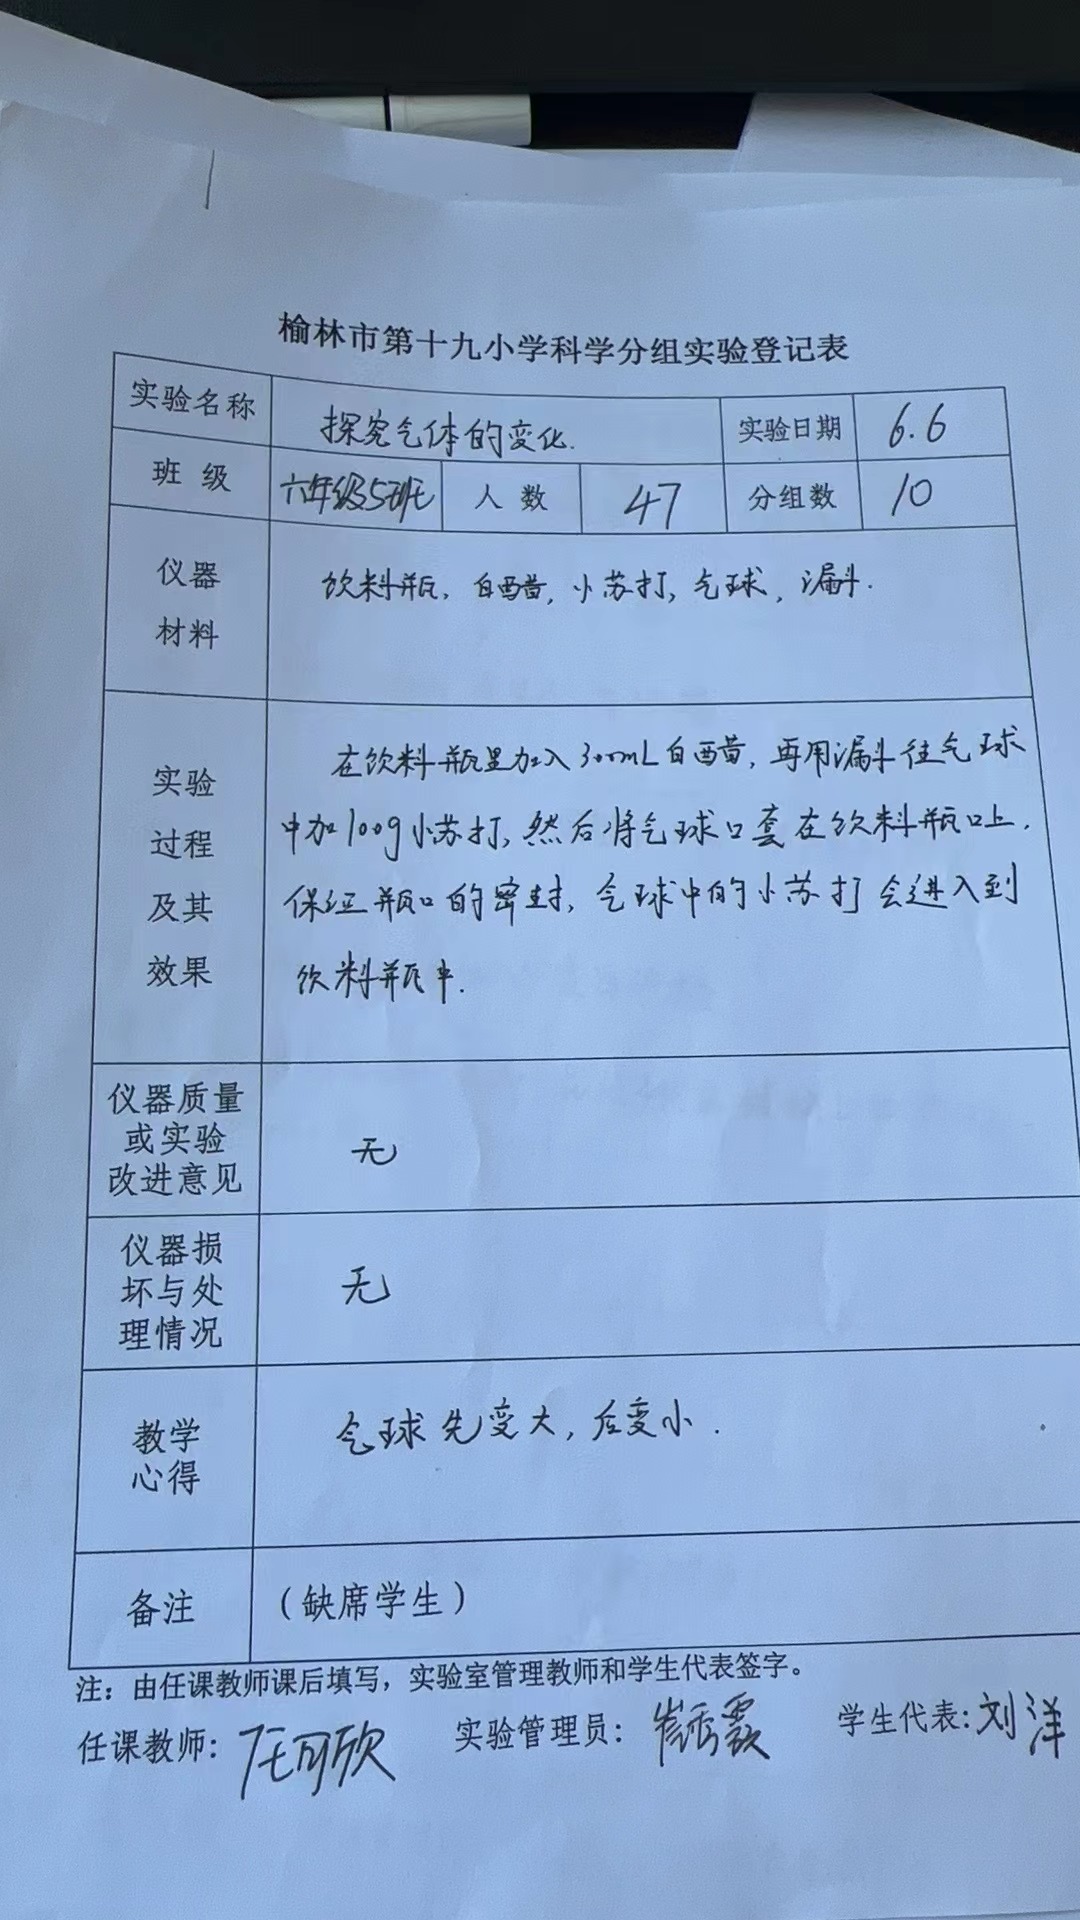 榆林市第十九小学科学分组实验登记表
实验名称 探究气体的变化. 实验日期 6.6
班 级 六年级5班 人 数 47 分组数 10
仪器
材料
饮料瓶, 白醋, 小苏打, 气球, 漏斗.
实验
过程
及其
效果
在饮料瓶里加入300mL白醋, 再用漏斗往气球
中加100g小苏打, 然后将气球口套在饮料瓶口上,
保证瓶口的密封, 气球中的小苏打会进入到
饮料瓶中.
仪器质量
或实验
改进意见
无
仪器损
坏与处
理情况
无
教学
心得
气球先变大, 后变小.
备注 (缺席学生)
注：由任课教师课后填写，实验室管理教师和学生代表签字。
任课教师: 可欣 实验管理员: 崔秀霞 学生代表: 刘洋